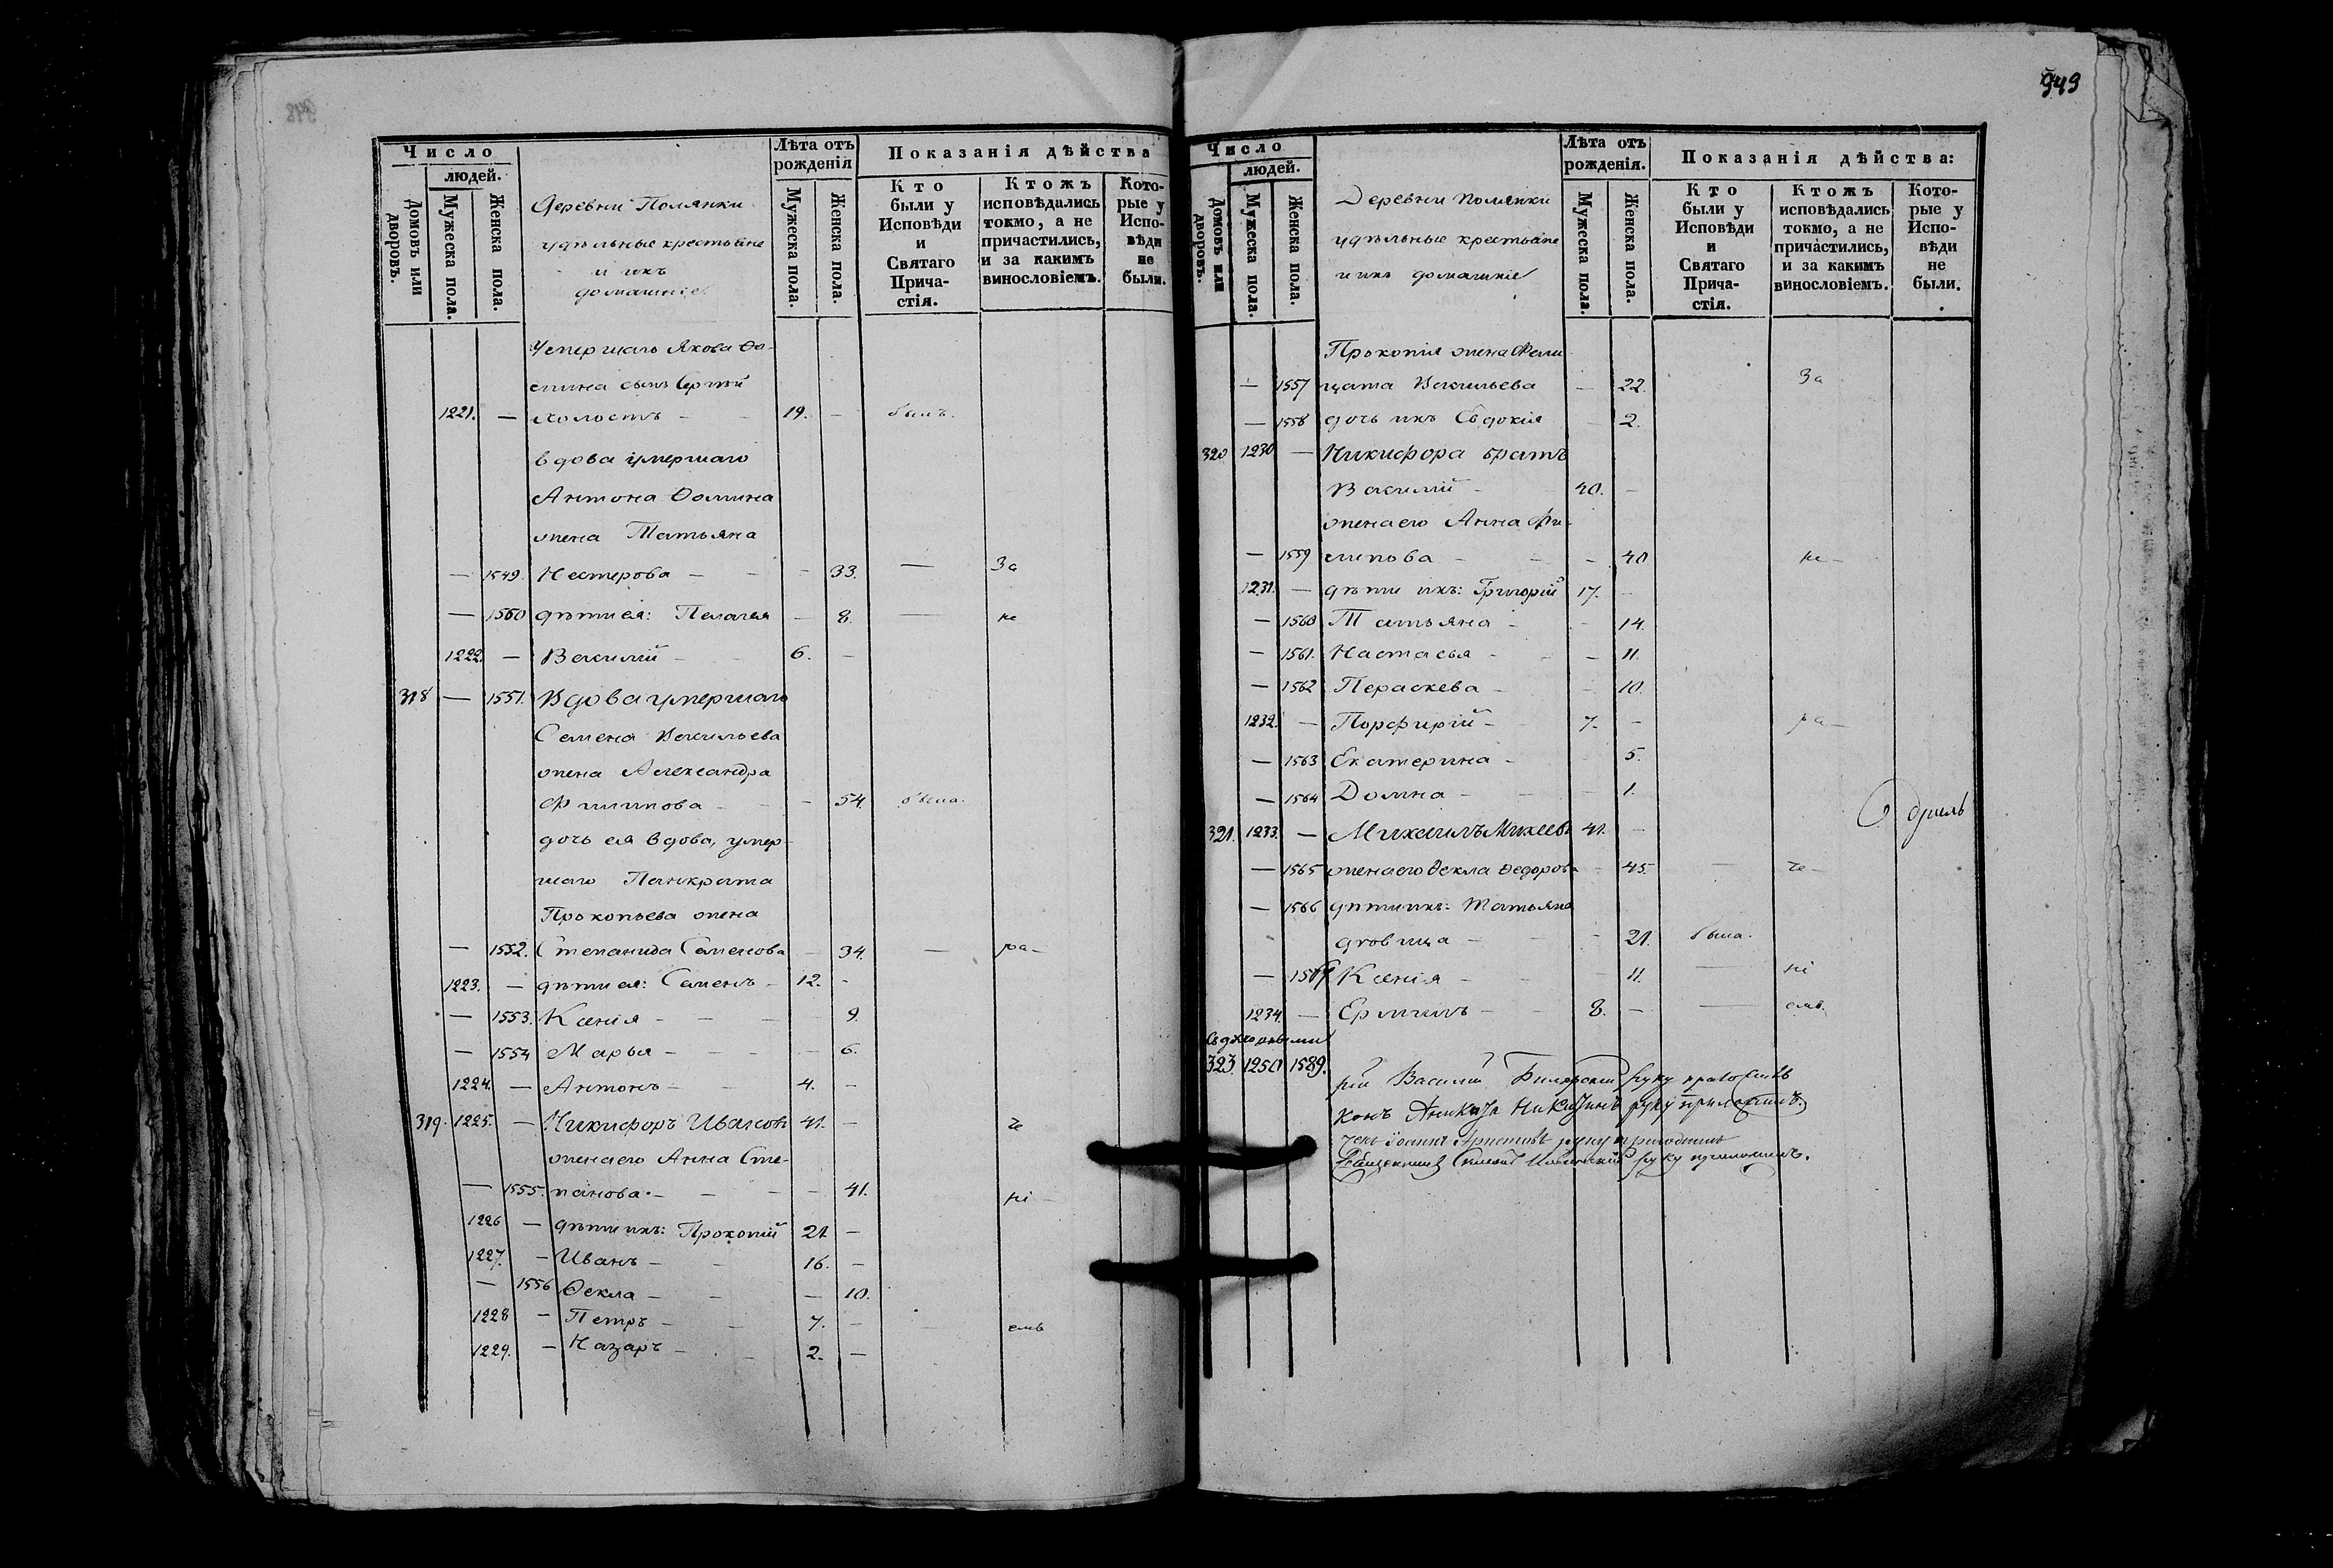 949
Число
людей.
Домовъ или дворовъ.
Мужеска пола.
Женска пола.
Деревни Полянки
удѣльные крестьяне
и ихъ
домашніе
Лѣта отъ
рожденія
Мужеска пола.
Женска пола.
Показанія дѣйства
Кто
были у
Исповѣди
и
Святаго
Прича-
стія.
Ктожъ
исповѣдались
токмо, а не
причастились,
и за какимъ
винословіемъ.
Кото-
рые у
Испо-
вѣди
не
были.
Умершаго Якова Ѳо-
мина сынъ Сергѣй
1221. — холостъ — 19. — былъ.
вдова умершаго
Антона Ѳомина
жена Татьяна
— 1549. Нестерова — — — 33. — За
— 1550 дѣти ея: Пелагея — 8. — не
1222. — Василій — — 6. —
318 — 1551. Вдова умершаго
Семена Васильева
жена Александра
Филипова — — 54 была.
дочь ея вдова, умер-
шаго Панкрата
Прокопьева жена
— 1552. Степанида Семенова — 34. — ра-
1223. — дѣти ея: Семенъ — 12. -
— 1553. Ксенія — — — 9.
— 1554 Марья — — — 6.
1224. — Антонъ — — 4. —
319. 1225. — Никифоръ Ивановъ 41. — че
жена его Анна Сте-
— 1555. панова. — — — 41. ні —
1226 — дѣти ихъ: Прокопій 21 —
1227. — Иванъ — — 16. —
— 1556 Ѳекла — — — 10.
1228 — Петръ — — 7. — емъ
1229. — Назаръ — — 2. —
Число
людей.
Домовъ или дворовъ.
Мужеска пола.
Женска пола.
Деревни Полянки
удѣльные крестьяне
и ихъ домашніе
Лѣта отъ
рожденія.
Мужеска пола.
Женска пола.
Показанія дѣйства:
Кто
были у
Исповѣди
и
Святаго
Прича-
стія.
Ктожъ
исповѣдались
токмо, а не
причастились,
и за какимъ
винословіемъ.
Кото-
рые у
Испо-
вѣди
не
были.
Прокопія жена Фели-
— 1557 цата Васильева — 22. За
— 1558 дочь ихъ Евдокія — 2.
320 1230 — Никифора братъ
Василій — 40. —
жена его Анна Фи-
— 1559 липова — — — 40 не —
1231. — дѣти ихъ: Григорій 17. —
— 1560 Татьяна — — 14.
— 1561. Настасья — — 11.
— 1562 Пераскева — — 10.
1232. — Порфирій — 7. — ра —
— 1563 Екатерина — 5.
— 1564 Домна — — 1.
321. 1233. — Михаилъ Михеевъ 41. —
— 1565 жена его Ѳекла Ѳедорова — 45. — че —
— 1566 дѣти ихъ: Татьяна
дѣвица — — 21. была.
— 1567 Ксенія — — 11. — ні
1234. — Ермилъ — — 8. — — емъ.
323. 1250 1589.
рей Василій руку приложилъ
конъ Аникита Никитинъ руку приложилъ.
руку приложилъ
руку приложилъ.